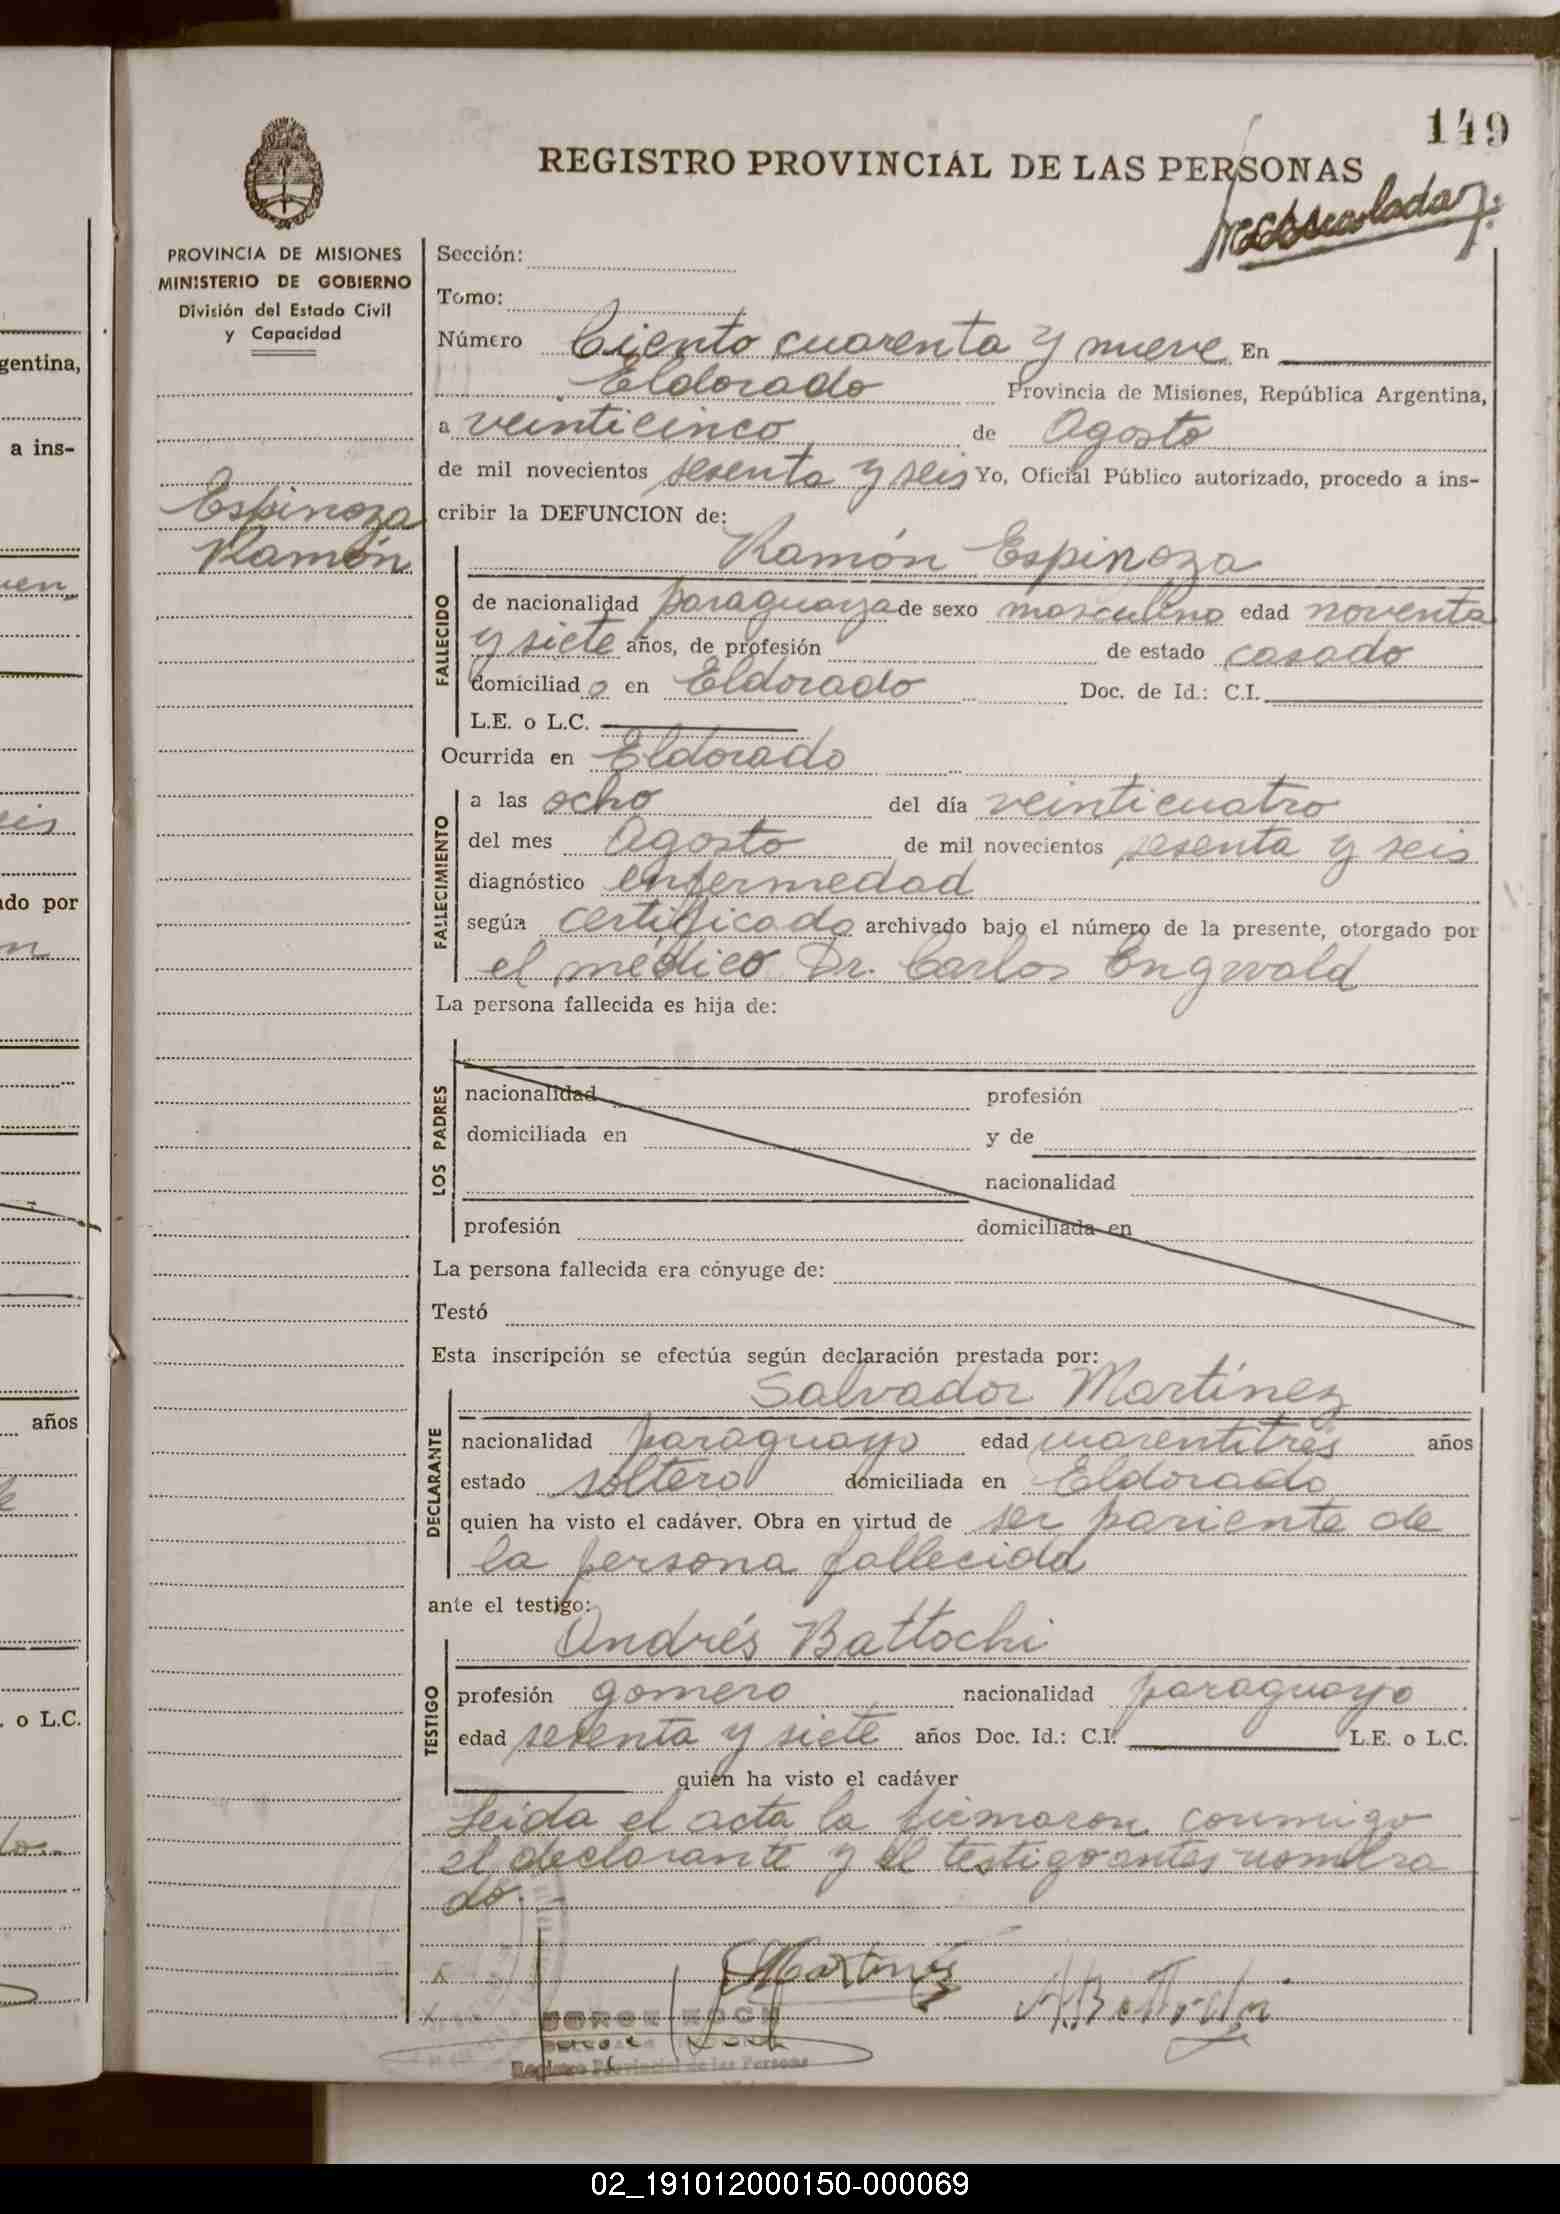 149
REGISTRO PROVINCIAL DE LAS PERSONAS
PROVINCIA DE MISIONES
MINISTERIO DE GOBIERNO
División del Estado Civil
y Capacidad
Espinoza
Ramón
Sección:
Tomo:
Número Ciento cuarenta y nueve En
Eldorado Provincia de Misiones, República Argentina,
a veinticinco de Agosto
de mil novecientos sesenta y seis Yo, Oficial Público autorizado, procedo a ins-
cribir la DEFUNCION de:
Ramón Espinoza
FALLECIDO
de nacionalidad paraguaya de sexo masculino edad noventa
y siete años, de profesión de estado casado
domiciliado en Eldorado Doc. de Id.: C.I.
L.E. o L.C.
Ocurrida en Eldorado
FALLECIMIENTO
a las ocho del día veinticuatro
del mes Agosto de mil novecientos sesenta y seis
diagnóstico enfermedad
según certificado archivado bajo el número de la presente, otorgado por
el médico Dr. Carlos Engwald
La persona fallecida es hija de:
LOS PADRES
nacionalidad profesión
domiciliada en y de
nacionalidad
profesión domiciliada en
La persona fallecida era cónyuge de:
Testó
Esta inscripción se efectúa según declaración prestada por:
Salvador Martínez
DECLARANTE
nacionalidad paraguayo edad cuarentitrés años
estado soltero domiciliada en Eldorado
quien ha visto el cadáver. Obra en virtud de ser pariente de
la persona fallecida
ante el testigo:
Andrés Battochi
TESTIGO
profesión gomero nacionalidad paraguayo
edad sesenta y siete años Doc. Id.: C.I. L.E. o L.C.
quien ha visto el cadáver
Leída el acta la firmaron conmigo
el declarante y el testigo antes nombra
do.-
SMartinez
JORGE KOCH
Registro Provincial de las Personas
gentina,
a ins-
eis
ado por
años
. o L.C.
02_191012000150-000069